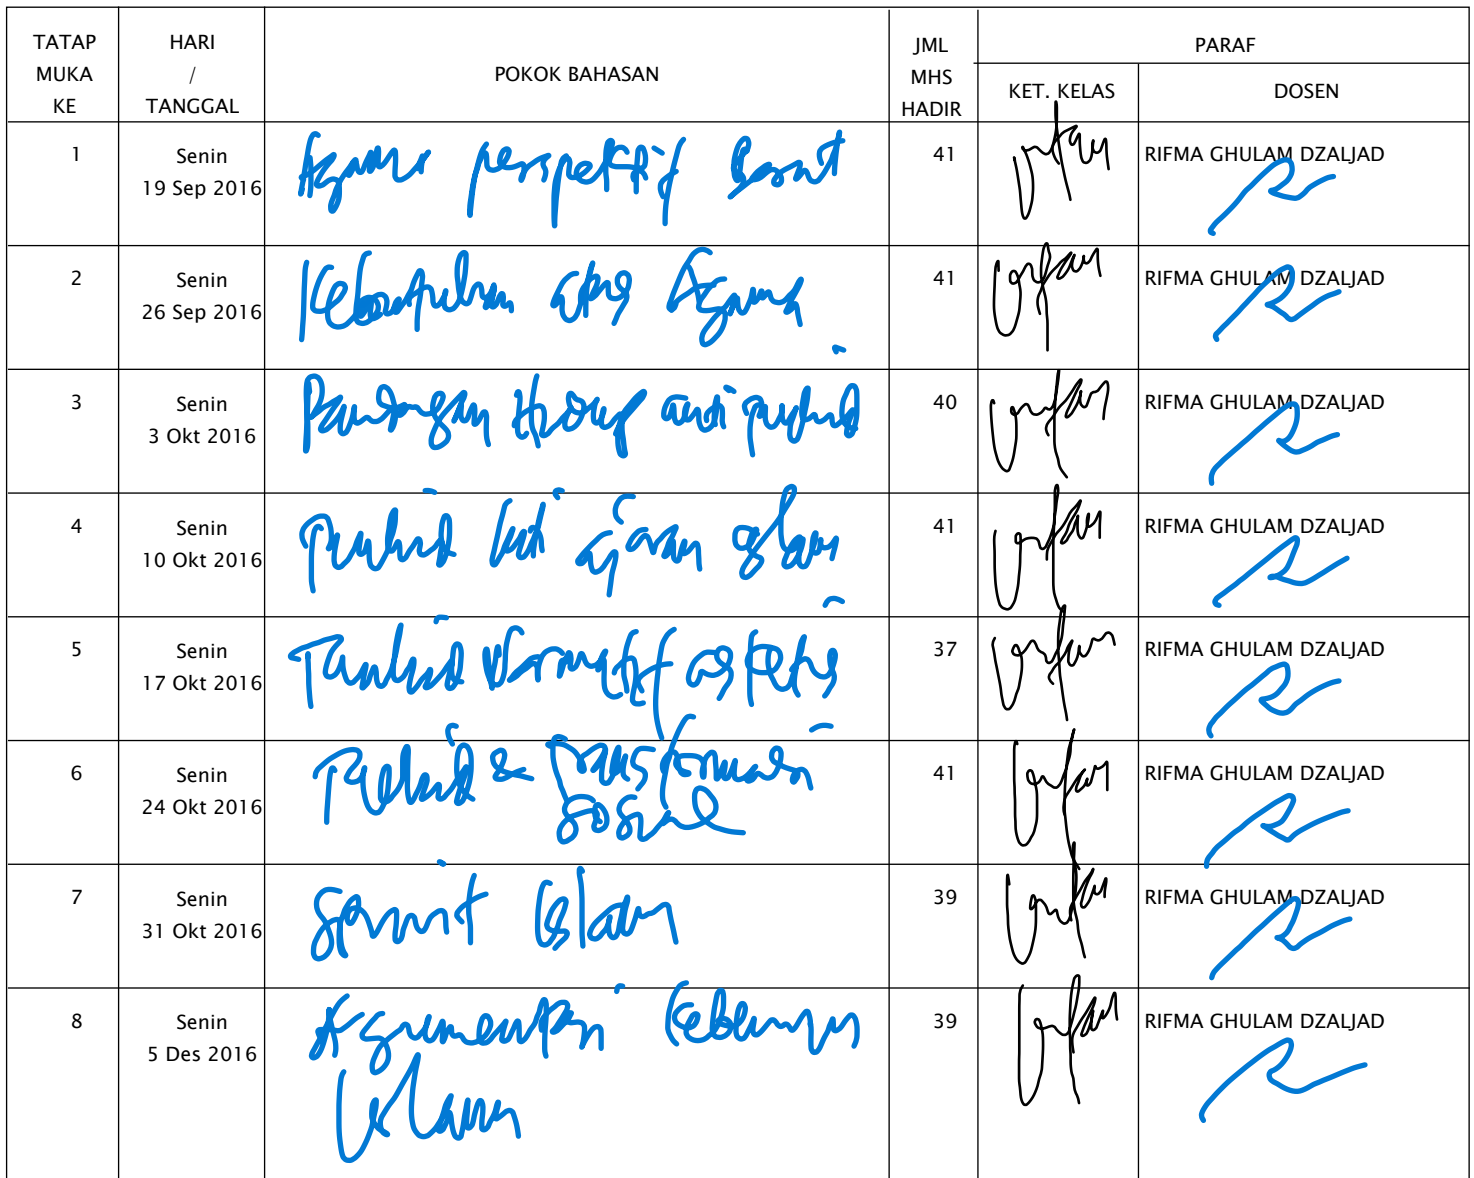 TATAP MUKA KE HARI / TANGGAL POKOK BAHASAN JML MHS HADIR PARAF
KET. KELAS DOSEN
1 Senin 19 Sep 2016 Agama perspektif Barat 41 RIFMA GHULAM DZALJAD
2 Senin 26 Sep 2016 Kebutuhan atas Agama 41 RIFMA GHULAM DZALJAD
3 Senin 3 Okt 2016 Pandangan Hidup anti tauhid 40 RIFMA GHULAM DZALJAD
4 Senin 10 Okt 2016 Tauhid inti ajaran Islam 41 RIFMA GHULAM DZALJAD
5 Senin 17 Okt 2016 Tauhid Normatif asketis 37 RIFMA GHULAM DZALJAD
6 Senin 24 Okt 2016 Tauhid & Transformasi sosial 41 RIFMA GHULAM DZALJAD
7 Senin 31 Okt 2016 Spirit Islam 39 RIFMA GHULAM DZALJAD
8 Senin 5 Des 2016 Argumentasi Islam 39 RIFMA GHULAM DZALJAD